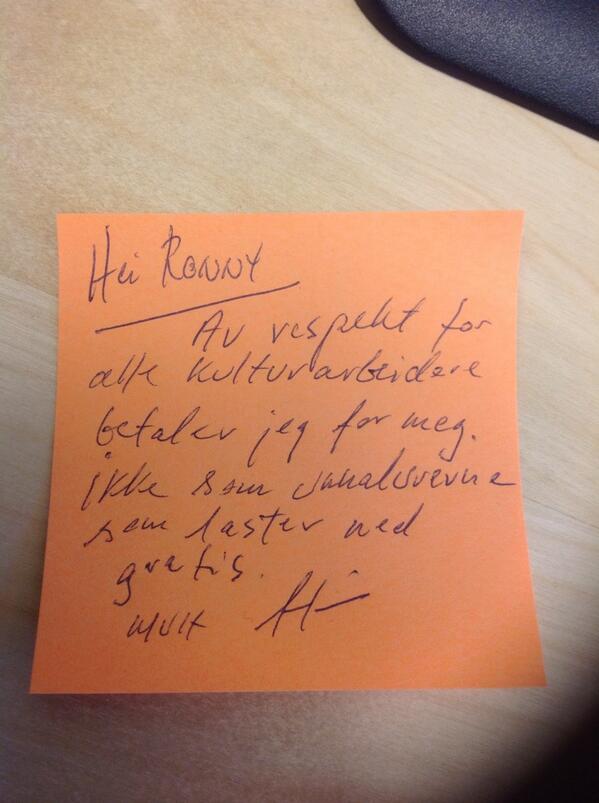 Hei RONNY
Av respekt for
alle kulturarbeidere
betaler jeg for meg.
ikke som
som laster ned
gratis.
MVH